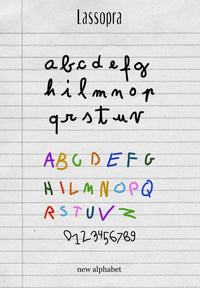 Lassopra
abcdefg
hilmnop
qrstuv
ABCDEFG
HILMNOPQ
RSTUVZ
0123456789
new alphabet